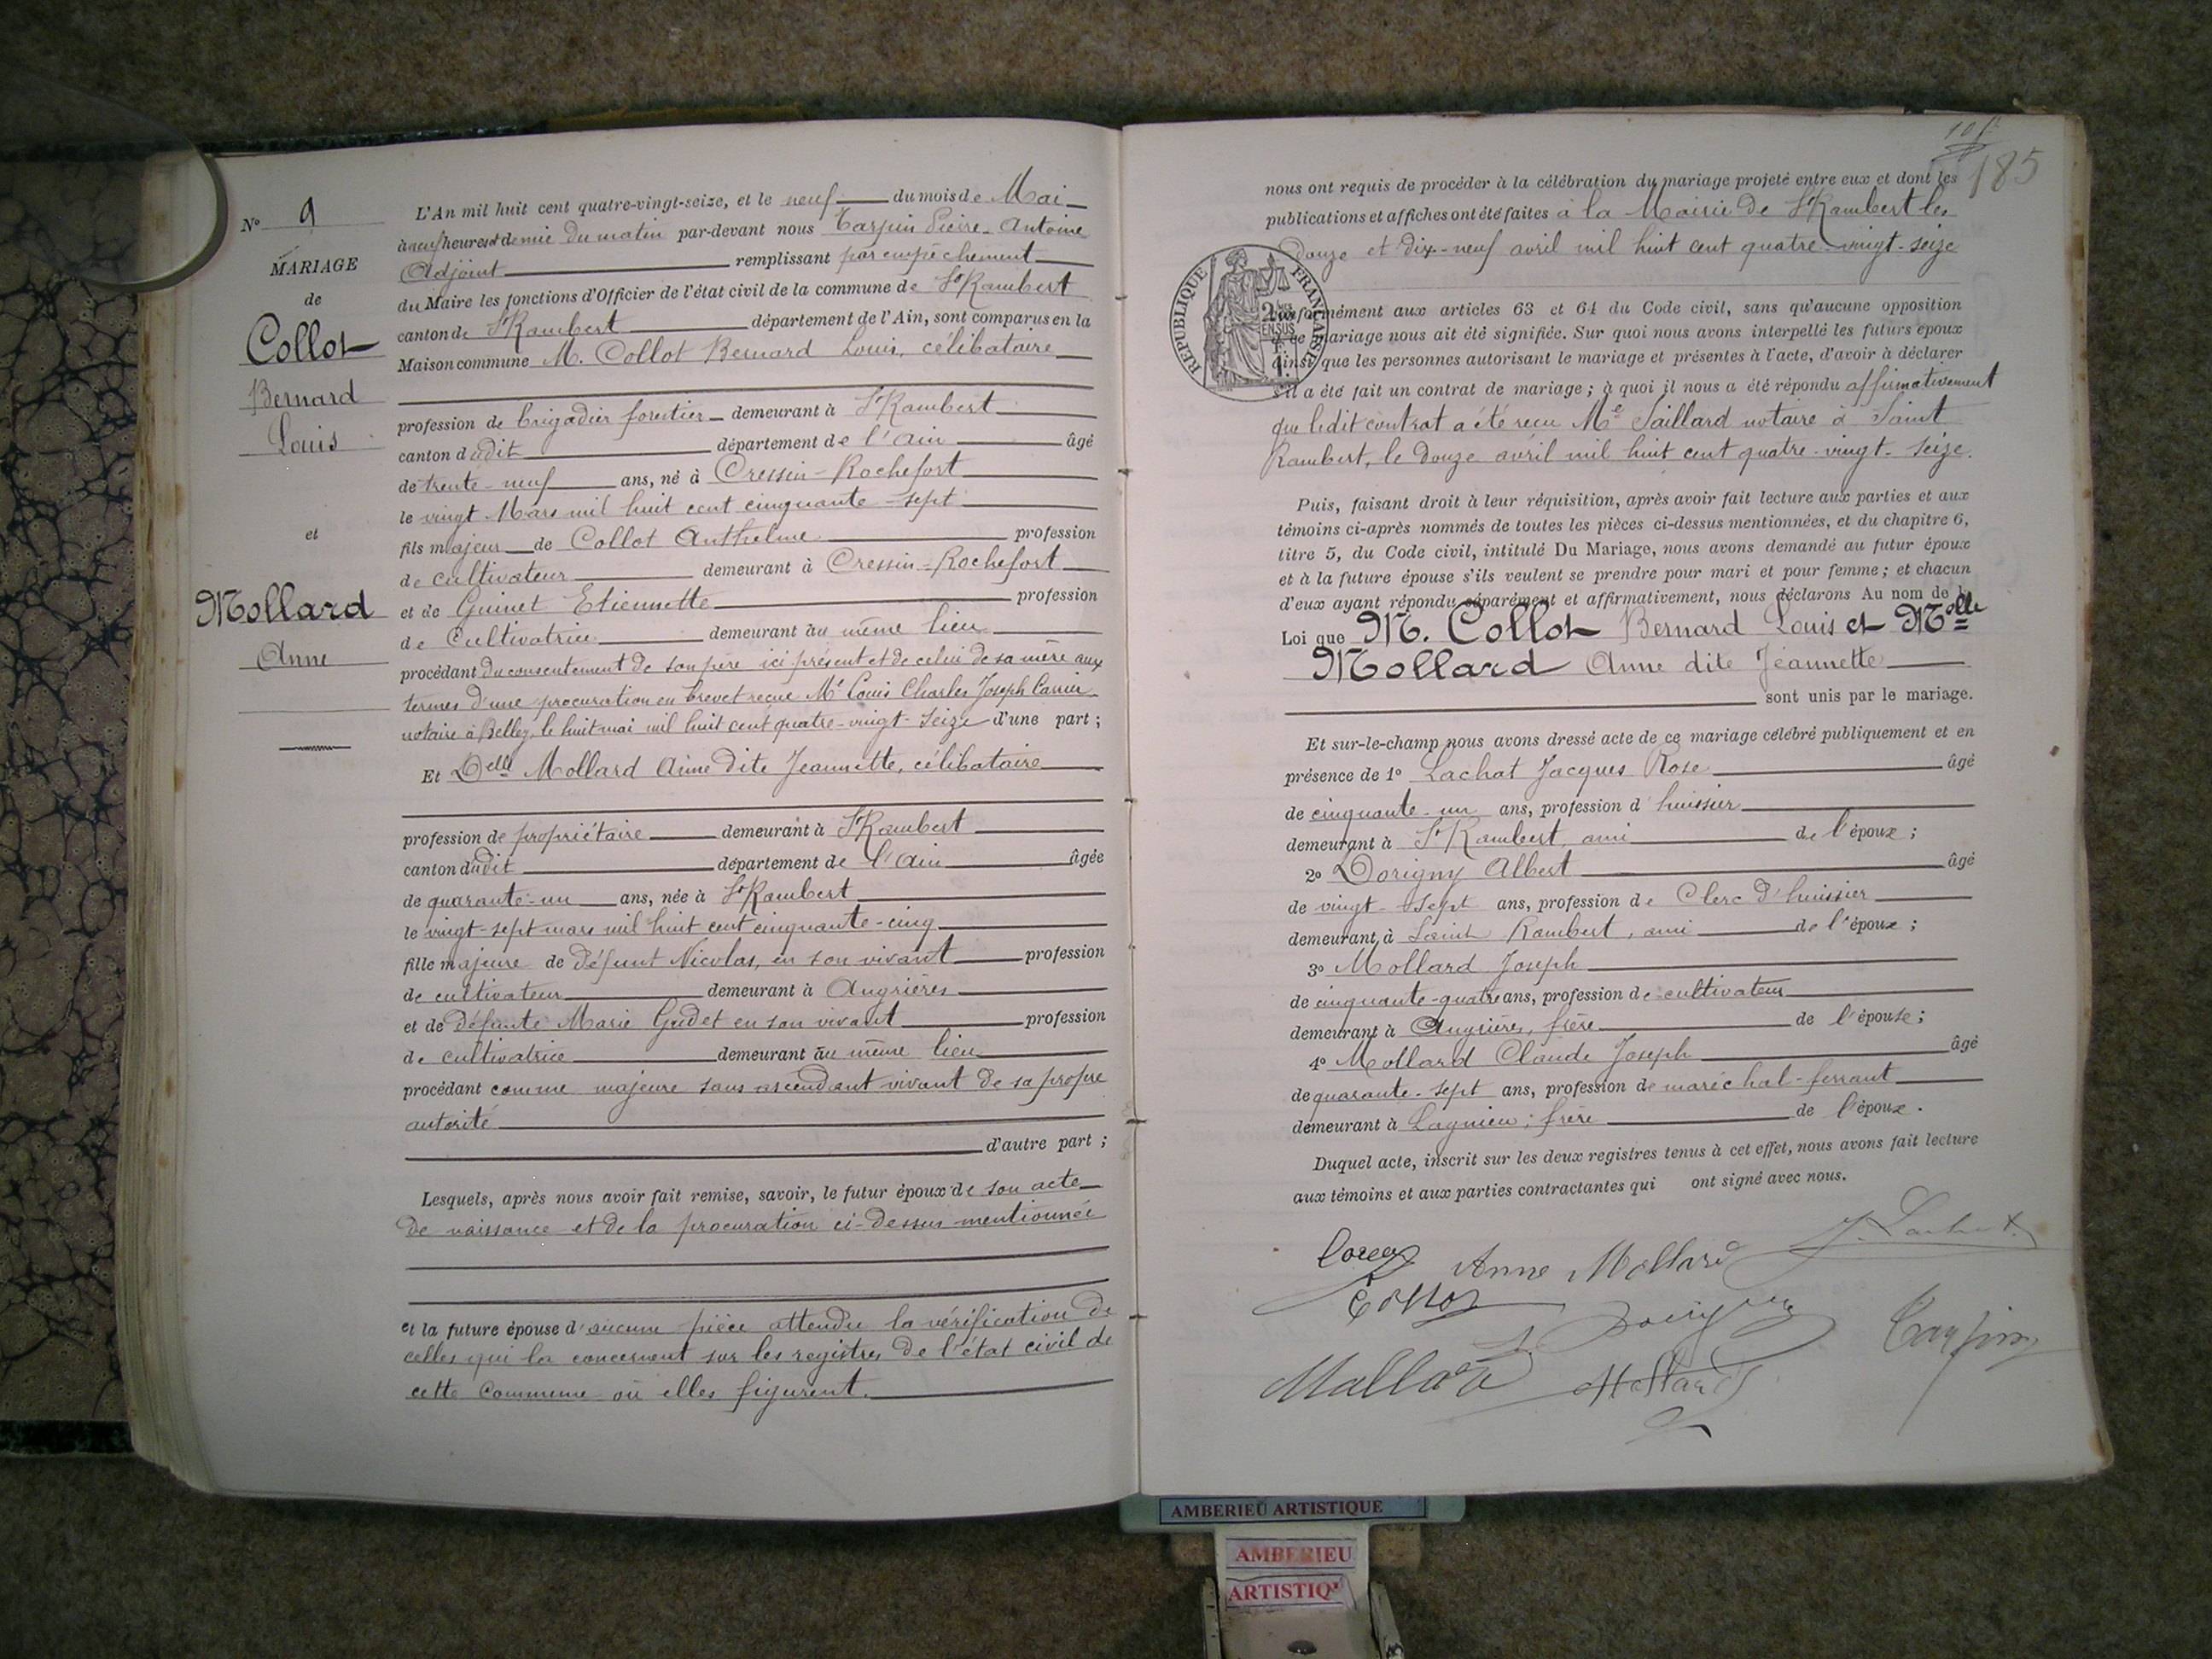 N° 9
MARIAGE
de
Collot
Bernard
Louis
et
Mollard
Anne
L'An mil huit cent quatre-vingt-seize, et le neuf du mois de Mai
à neuf heures et demie du matin par-devant nous Tarpin Pierre-Antoine
Adjoint remplissant par empêchement
du Maire les fonctions d'Officier de l'état civil de la commune de St Rambert
canton de St Rambert département de l'Ain, sont comparus en la
Maison commune M. Collot Bernard Louis, célibataire
profession de brigadier forestier demeurant à St Rambert
canton dudit département de l'Ain âgé
de trente-neuf ans, né à Cressin-Rochefort
le vingt Mars mil huit cent cinquante-sept
fils majeur de Collot Anthelme profession
de cultivateur demeurant à Cressin-Rochefort
et de Guinet Etiennette profession
de Cultivatrice demeurant au même lieu
procédant du consentement de son père ici présent et de celui de sa mère aux
termes d'une procuration en brevet reçue Me Louis Charles Joseph Carrier
notaire à Belley, le huit mai mil huit cent quatre-vingt-seize d'une part ;
Et Delle Mollard Anne dite Jeannette, célibataire
profession de propriétaire demeurant à St Rambert
canton dudit département de l'Ain âgée
de quarante-un ans, née à St Rambert
le vingt-sept mars mil huit cent cinquante-cinq
fille majeure de défunt Nicolas, en son vivant profession
de cultivateur demeurant à Angrières
et de défunte Marie Gudet en son vivant profession
de cultivatrice demeurant au même lieu
procédant comme majeure sans ascendant vivant de sa propre
autorité
d'autre part ;
Lesquels, après nous avoir fait remise, savoir, le futur époux de son acte
de naissance et de la procuration ci-dessus mentionnée
et la future épouse d'aucune pièce attendu la vérification de
celles qui la concernent sur les registres de l'état civil de
cette Commune où elles figurent.
185
nous ont requis de procéder à la célébration du mariage projeté entre eux et dont les
publications et affiches ont été faites à la Mairie de St Rambert les
douze et dix-neuf avril mil huit cent quatre-vingt-seize
REPUBLIQUE FRANÇAISE
conformément aux articles 63 et 64 du Code civil, sans qu'aucune opposition
à ce mariage nous ait été signifiée. Sur quoi nous avons interpellé les futurs époux
ainsi que les personnes autorisant le mariage et présentes à l'acte, d'avoir à déclarer
s'il a été fait un contrat de mariage ; à quoi il nous a été répondu affirmativement
que ledit contrat a été reçu Me Saillard notaire à Saint
Rambert, le douze avril mil huit cent quatre-vingt-seize.
Puis, faisant droit à leur réquisition, après avoir fait lecture aux parties et aux
témoins ci-après nommés de toutes les pièces ci-dessus mentionnées, et du chapitre 6,
titre 5, du Code civil, intitulé Du Mariage, nous avons demandé au futur époux
et à la future épouse s'ils veulent se prendre pour mari et pour femme ; et chacun
d'eux ayant répondu séparément et affirmativement, nous déclarons Au nom de la
Loi que M. Collot Bernard Louis et Melle
Mollard Anne dite Jeannette
sont unis par le mariage.
Et sur-le-champ nous avons dressé acte de ce mariage célébré publiquement et en
présence de 1° Lachat Jacques Rose âgé
de cinquante-un ans, profession d'huissier
demeurant à St Rambert, ami de l'époux ;
2° Dorigny Albert âgé
de vingt-sept ans, profession de Clerc d'huissier
demeurant à Saint Rambert, ami de l'époux ;
3° Mollard Joseph
de cinquante-quatre ans, profession de cultivateur
demeurant à Angrières, frère de l'épouse ;
4° Mollard Claude Joseph âgé
de quarante-sept ans, profession de maréchal-ferrant
demeurant à Lagnieu ; frère de l'époux.
Duquel acte, inscrit sur les deux registres tenus à cet effet, nous avons fait lecture
aux témoins et aux parties contractantes qui ont signé avec nous.
Anne Mollard J. Lachat
Collot
Dorigny Tarpin
Mollard Mollard
AMBERIEU ARTISTIQUE
AMBERIEU
ARTISTIQ